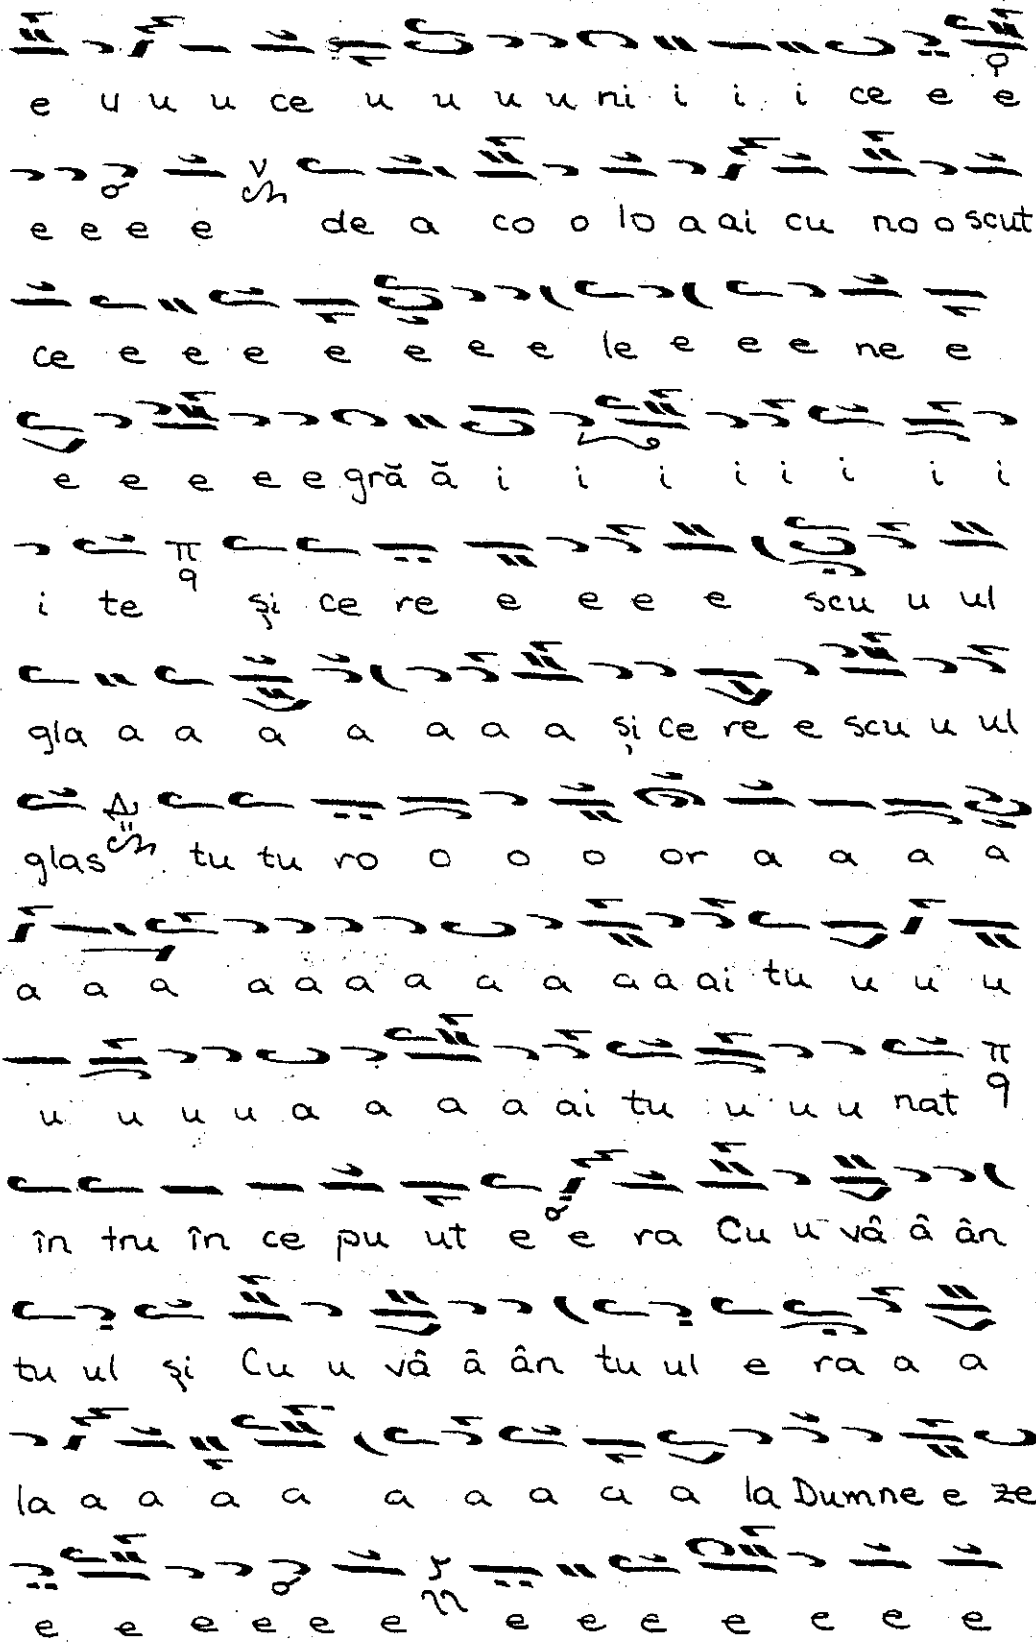 e u u u ce u u u u ni i i i ce e e
e e e e de a co o lo a ai cu no o scut
ce e e e e e e e le e e e ne e
e e e e e gră ă i i i i i i i i
i te π q şi ce re e e e e scu u ul
gla a a a a a a a şi ce re e scu u ul
glas tu tu ro o o o or a a a a
a a a a a a a a a a a ai tu u u u
u u u u a a a a ai tu u u u nat π q
în tru în ce pu ut e e ra Cu u vâ â ân
tu ul şi Cu u vâ â ân tu ul e ra a a
la a a a a a a a a a la Dumne e ze
e e e e e e e e e e e e e